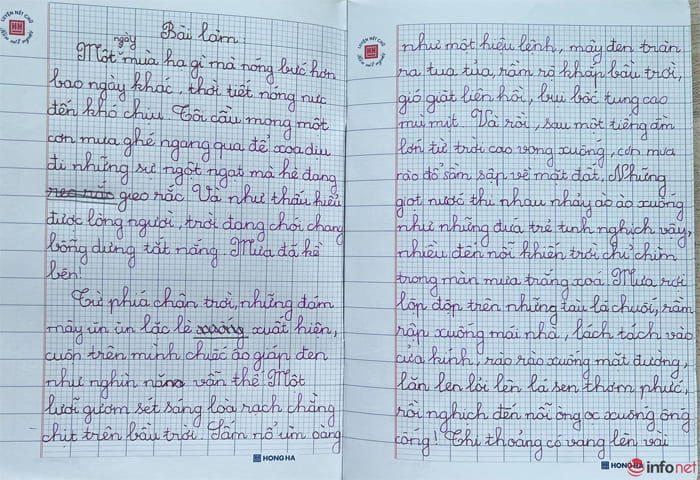 LUYỆN NÉT CHỮ
HH
Bài làm:
ngày
Một mùa hạ gì mà nóng bức hơn
bao ngày khác, thời tiết nóng nực
đến khó chịu. Tôi cầu mong một
cơn mưa ghé ngang qua để xoa dịu
đi những sự ngột ngạt mà hè đang
gieo rắc. Và như thấu hiểu
được lòng người, trời đang chói chang
bỗng dưng tắt nắng. Mưa đã kề
bên!
Từ phía chân trời, những đám
mây ùn ùn lắc lè xuống xuất hiện,
cuốn trên mình chiếc áo gián đen
như nghìn năm vẫn thế. Một
lưỡi gươm sét sáng loà rạch chằng
chịt trên bầu trời. Sấm nổ ùn oàng
HONG HA
LUYỆN NÉT CHỮ
HH
như một hiệu lệnh, mây đen tràn
ra tua tủa, rầm rộ khắp bầu trời,
gió giật liên hồi, bụi bốc tung cao
mù mịt. Và rồi, sau một tiếng ầm
lớn từ trời cao vọng xuống, cơn mưa
rào đổ sầm sập về mặt đất. Những
giọt nước thi nhau nhảy ào ào xuống
như những đứa trẻ tinh nghịch vậy,
nhiều đến nỗi khiến trời chỉ chìm
trong màn mưa trắng xoá. Mưa rơi
lộp độp trên những tàu lá chuối, rầm
rập xuống mái nhà, lách tách vào
cửa kính, rào rào xuống mặt đường,
lăn len lỏi lên lá sen thơm phức,
rồi nghịch đến nỗi òng ọc xuống ống
cống! Thi thoảng có vang lên vài
HONG HA
infonet